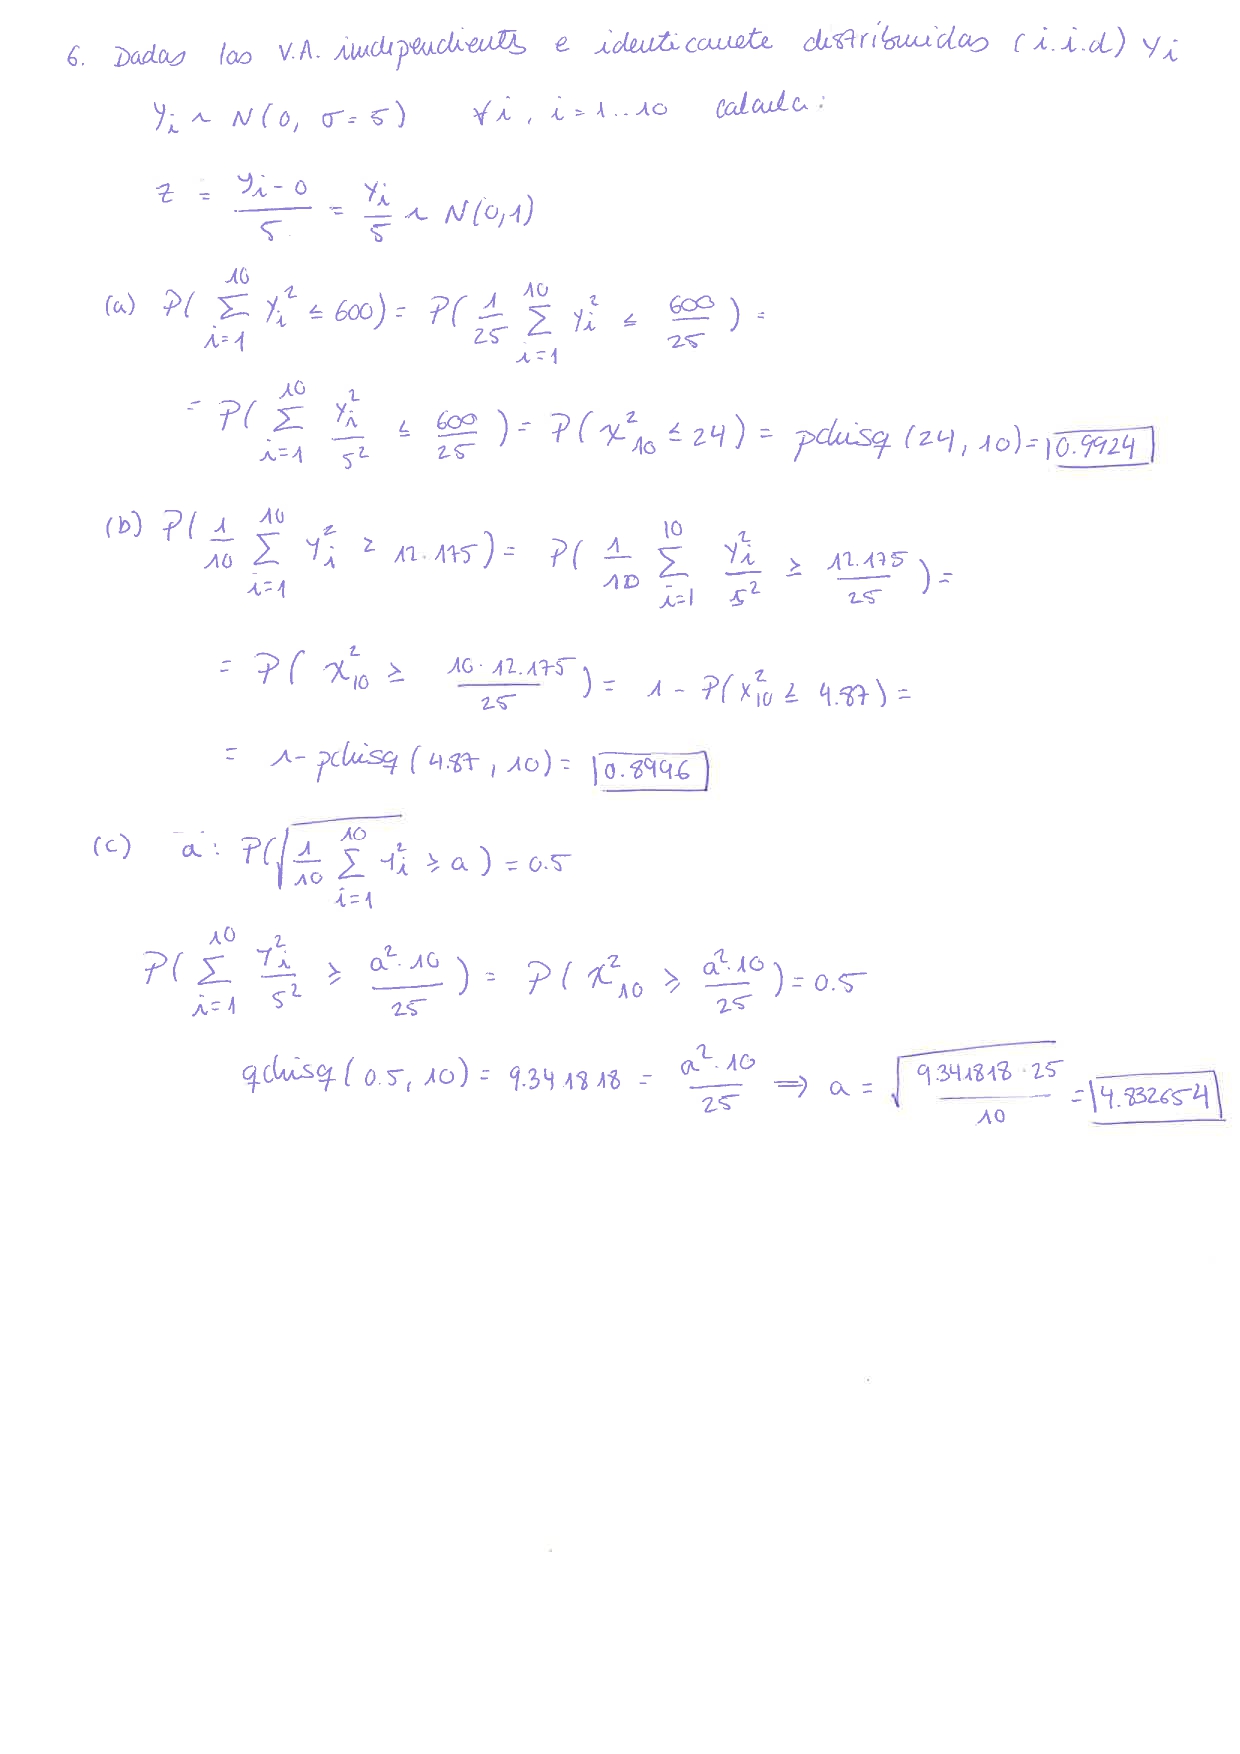 6. Dadas las V.A. independients e identicamete distribuidas (i.i.d) Yi
Yi ~ N(0, σ=5) ∀i, i=1..10 calcula:
Z = (Yi-0)/5 = Yi/5 ~ N(0,1)
(a) P(∑_{i=1}^{10} Yi² ≤ 600) = P(1/25 ∑_{i=1}^{10} Yi² ≤ 600/25) =
= P(∑_{i=1}^{10} Yi²/5² ≤ 600/25) = P(χ²_10 ≤ 24) = pchisq(24, 10) = 0.9924
(b) P(1/10 ∑_{i=1}^{10} Yi² ≥ 12.175) = P(1/10 ∑_{i=1}^{10} Yi²/5² ≥ 12.175/25) =
= P(χ²_10 ≥ 10·12.175/25) = 1 - P(χ²_10 ≤ 4.87) =
= 1- pchisq(4.87, 10) = 0.8996
(c) a: P(√(1/10 ∑_{i=1}^{10} Yi²) ≥ a) = 0.5
P(∑_{i=1}^{10} Yi²/5² ≥ a²·10/25) = P(χ²_10 ≥ a²·10/25) = 0.5
qchisq(0.5, 10) = 9.341818 = a²·10/25 ⟹ a = √(9.341818·25/10) = 4.832654